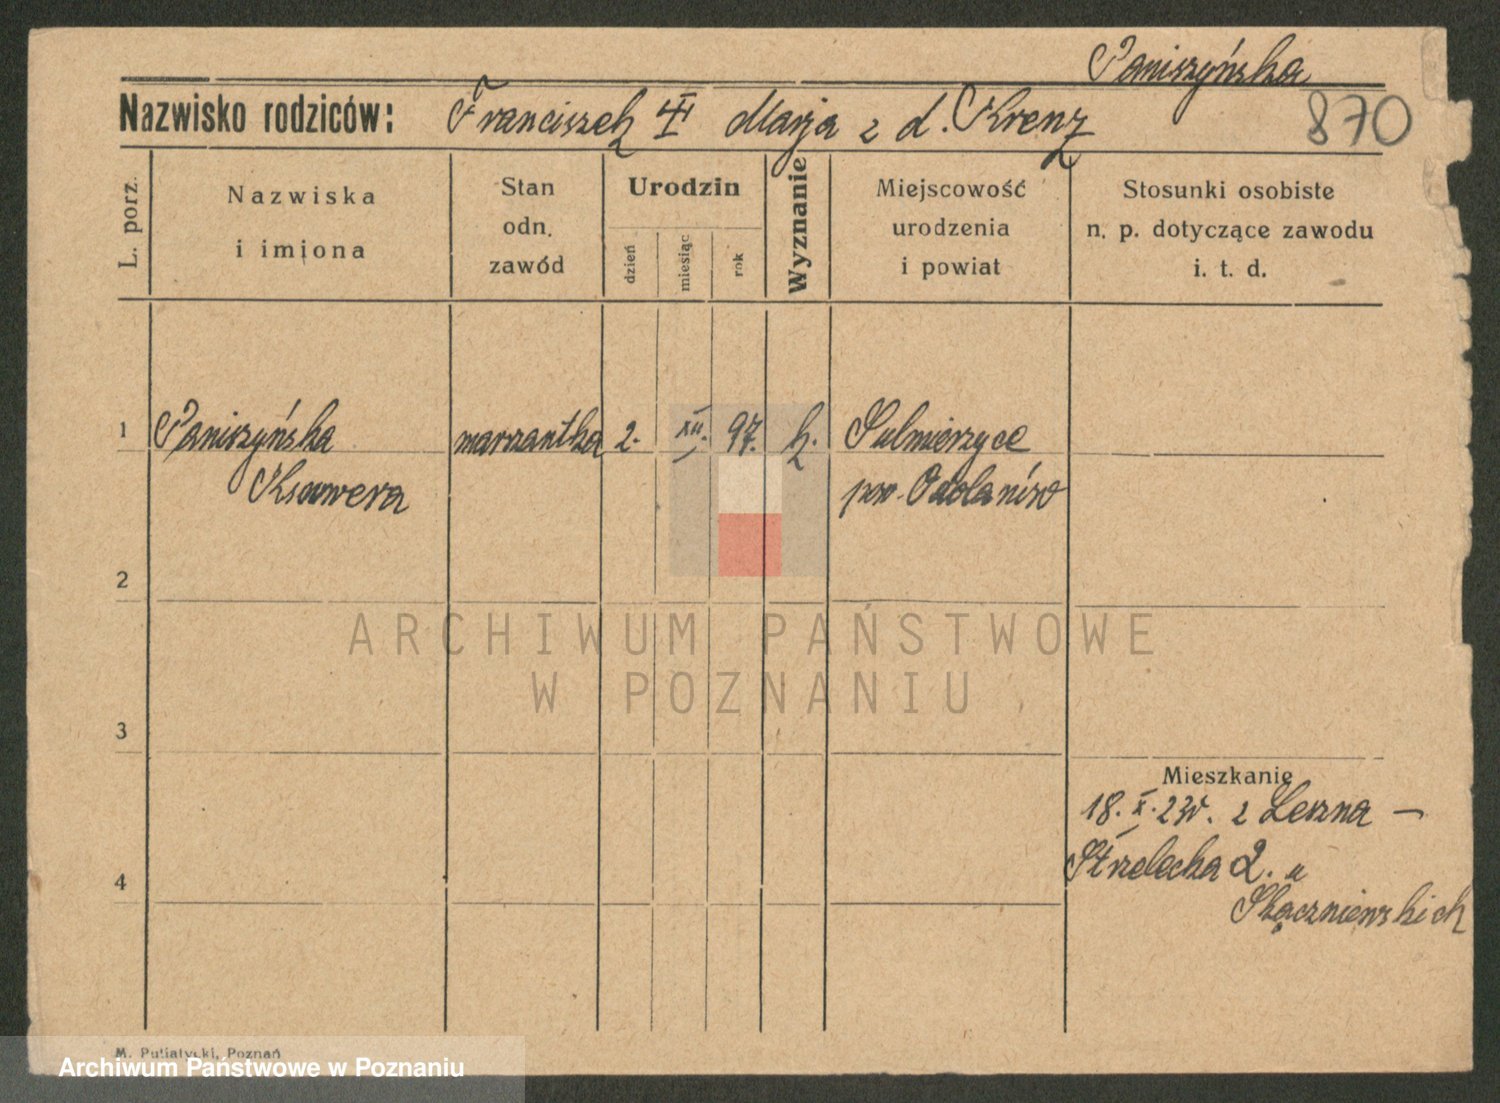 Paniszyńska
Nazwisko rodziców: Franciszek Marja z d. Krenz
870
L. porz.
Nazwiska
i imiona
Stan
odn.
zawód
Urodzin
dzień
miesiąc
rok
Wyznanie
Miejscowość
urodzenia
i powiat
Stosunki osobiste
n. p. dotyczące zawodu
i. t. d.
1 Paniszyńska 2. XII. 97. k. Sulmierzyce
Ksawera pow. Odolanów
2
ARCHIWUM PAŃSTWOWE
W POZNANIU
3
Mieszkanie
18. X. 23r. z Leszna —
Strzelecka 2. u
4
M. Putiatycki, Poznań
Archiwum Państwowe w Poznaniu